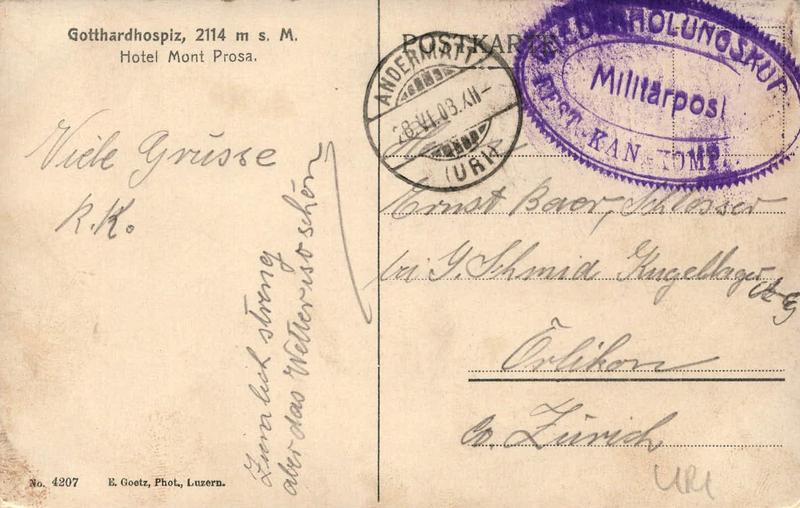 Gotthardhospiz, 2114 m s. M.
Hotel Mont Prosa.
Viele Grüsse
R.K.
Ziemlich streng
aber das Wetter ist so schön
No. 4207 E. Goetz, Phot., Luzern.
POSTKARTE
ANDERMATT
28.VI.08.XII-
(URI)
WIEDERHOLUNGSKURS
Militärpost
FEST. KAN. KOMP.
Ernst Baer, Schlosser
bei J. Schmid Kugellager
A.G
Örlikon
Co. Zürich
URI